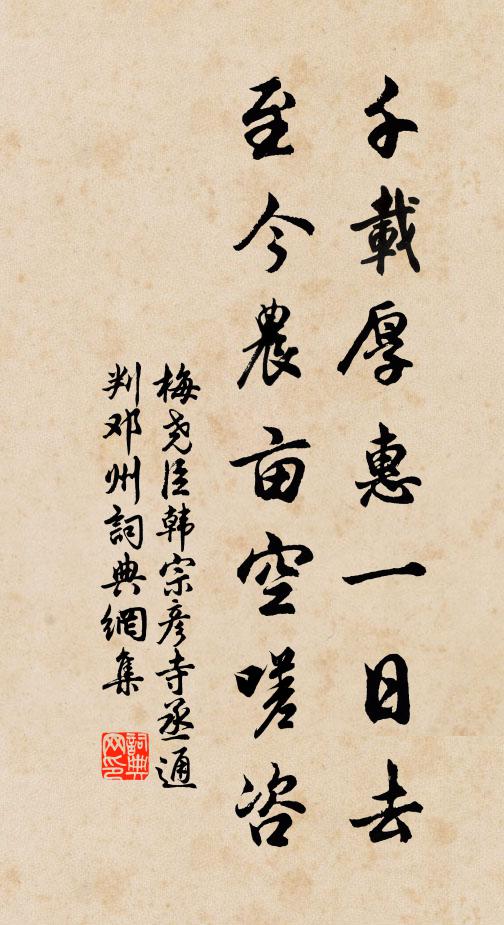 千載厚惠一日去
至今農亩空嗟咨
梅尧臣韩宗彦寺丞通
判邓州詞典網集
詞典
网印